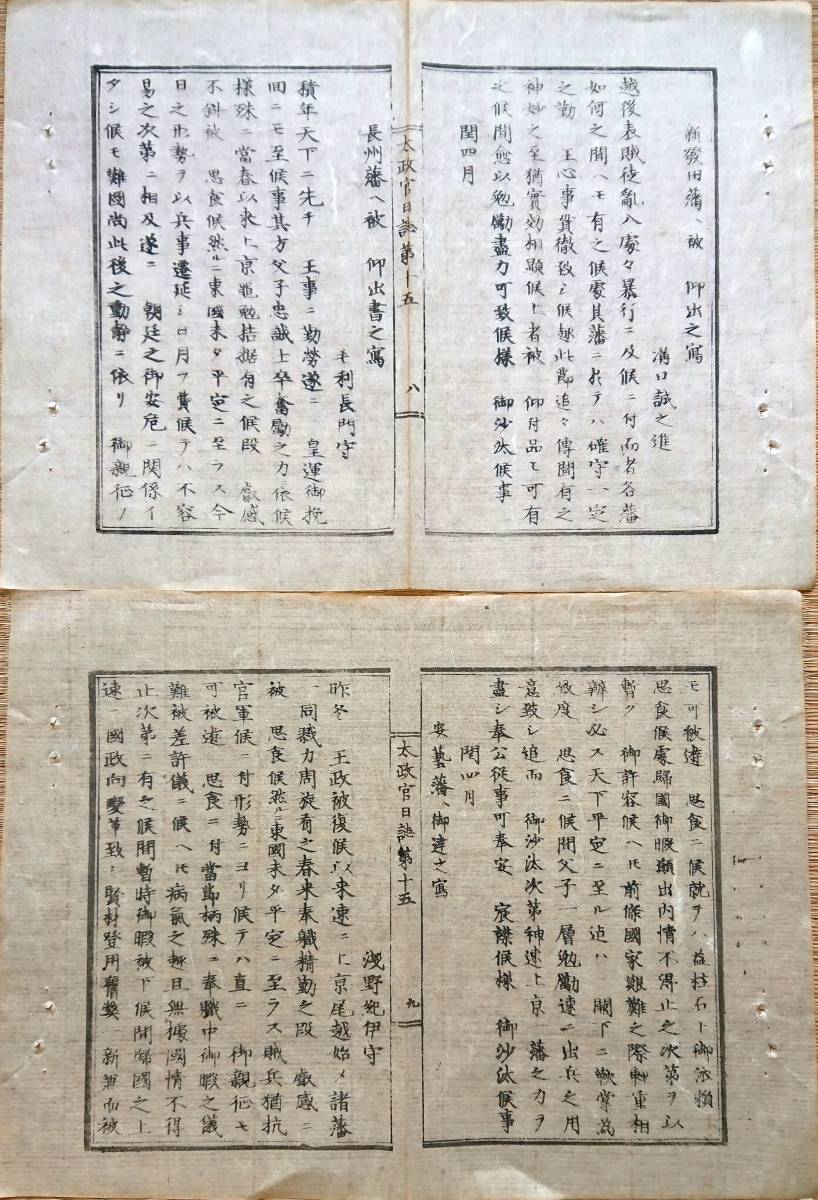 新發田藩ヘ被　仰出之寫
溝口誠之進
越後表賊徒亂入處々暴行ニ及候ニ付而者各藩
如何之間ヘモ有之候處其藩ニ於テハ確守一定
之勤　王心事貫徹致シ候趣此節追々傳聞有之
神妙之至猶實効相顯候上者被　仰付品モ可有
之候間愈以勉勵盡力可致候樣　御沙汰候事
閏四月
太政官日誌第十五　八
長州藩ヘ被　仰出書之寫
毛利長門守
積年天下ニ先チ　王事ニ勤勞遂ニ　皇運御挽
回ニモ至候事其方父子忠誠上卒奮勵之力ニ依候
樣殊ニ當春以來上京黽勉拮据有之候段　叡感
不斜被　思食候然ルニ東國未タ平定ニ至ラス今
日之形勢ヲ以兵事遷延シ日月ヲ費候テハ不容
易之次第ニ相及遂ニ　朝廷之御安危ニ関係イ
タシ候モ難圖尚此後之動靜ニ依リ　御親征ノ
モ可被遊　思食ニ候就テハ益柱石ト御依頼
思食候處歸國御暇願出内情不得止之次第ヲ以
暫ク　御許容候ヘ𪜈前條國家艱難之際輕重相
辨シ必ス天下平定ニ至ル迠ハ　闕下ニ鞅掌為
致度　思食ニ候間父子一層勉勵速ニ出兵之用
意致シ追而　御沙汰次第神速上京一藩之力ヲ
盡シ奉公従事可奉安　宸襟候樣　御沙汰候事
閏四月
安藝藩ヘ御達之寫
太政官日誌第十五　九
淺野紀伊守
昨冬　王政被復候以来速ニ上京尾越始メ諸藩
一同戮力周旋有之春来奉職精勤之段　叡感ニ
被　思食候然ルニ東國未タ平定ニ至ラス賊兵猶抗
官軍候ニ付形勢ニヨリ候テハ直ニ　御親征モ
可被遊　思食ニ付當節柄殊ニ奉職中御暇之儀
難被差許儀ニ候ヘ𪜈病氣之趣且無據國情不得
止次第ニ有之候間暫時御暇被下候間歸國之上
速ニ國政向變革致シ賢材登用舊獘一新兼而被